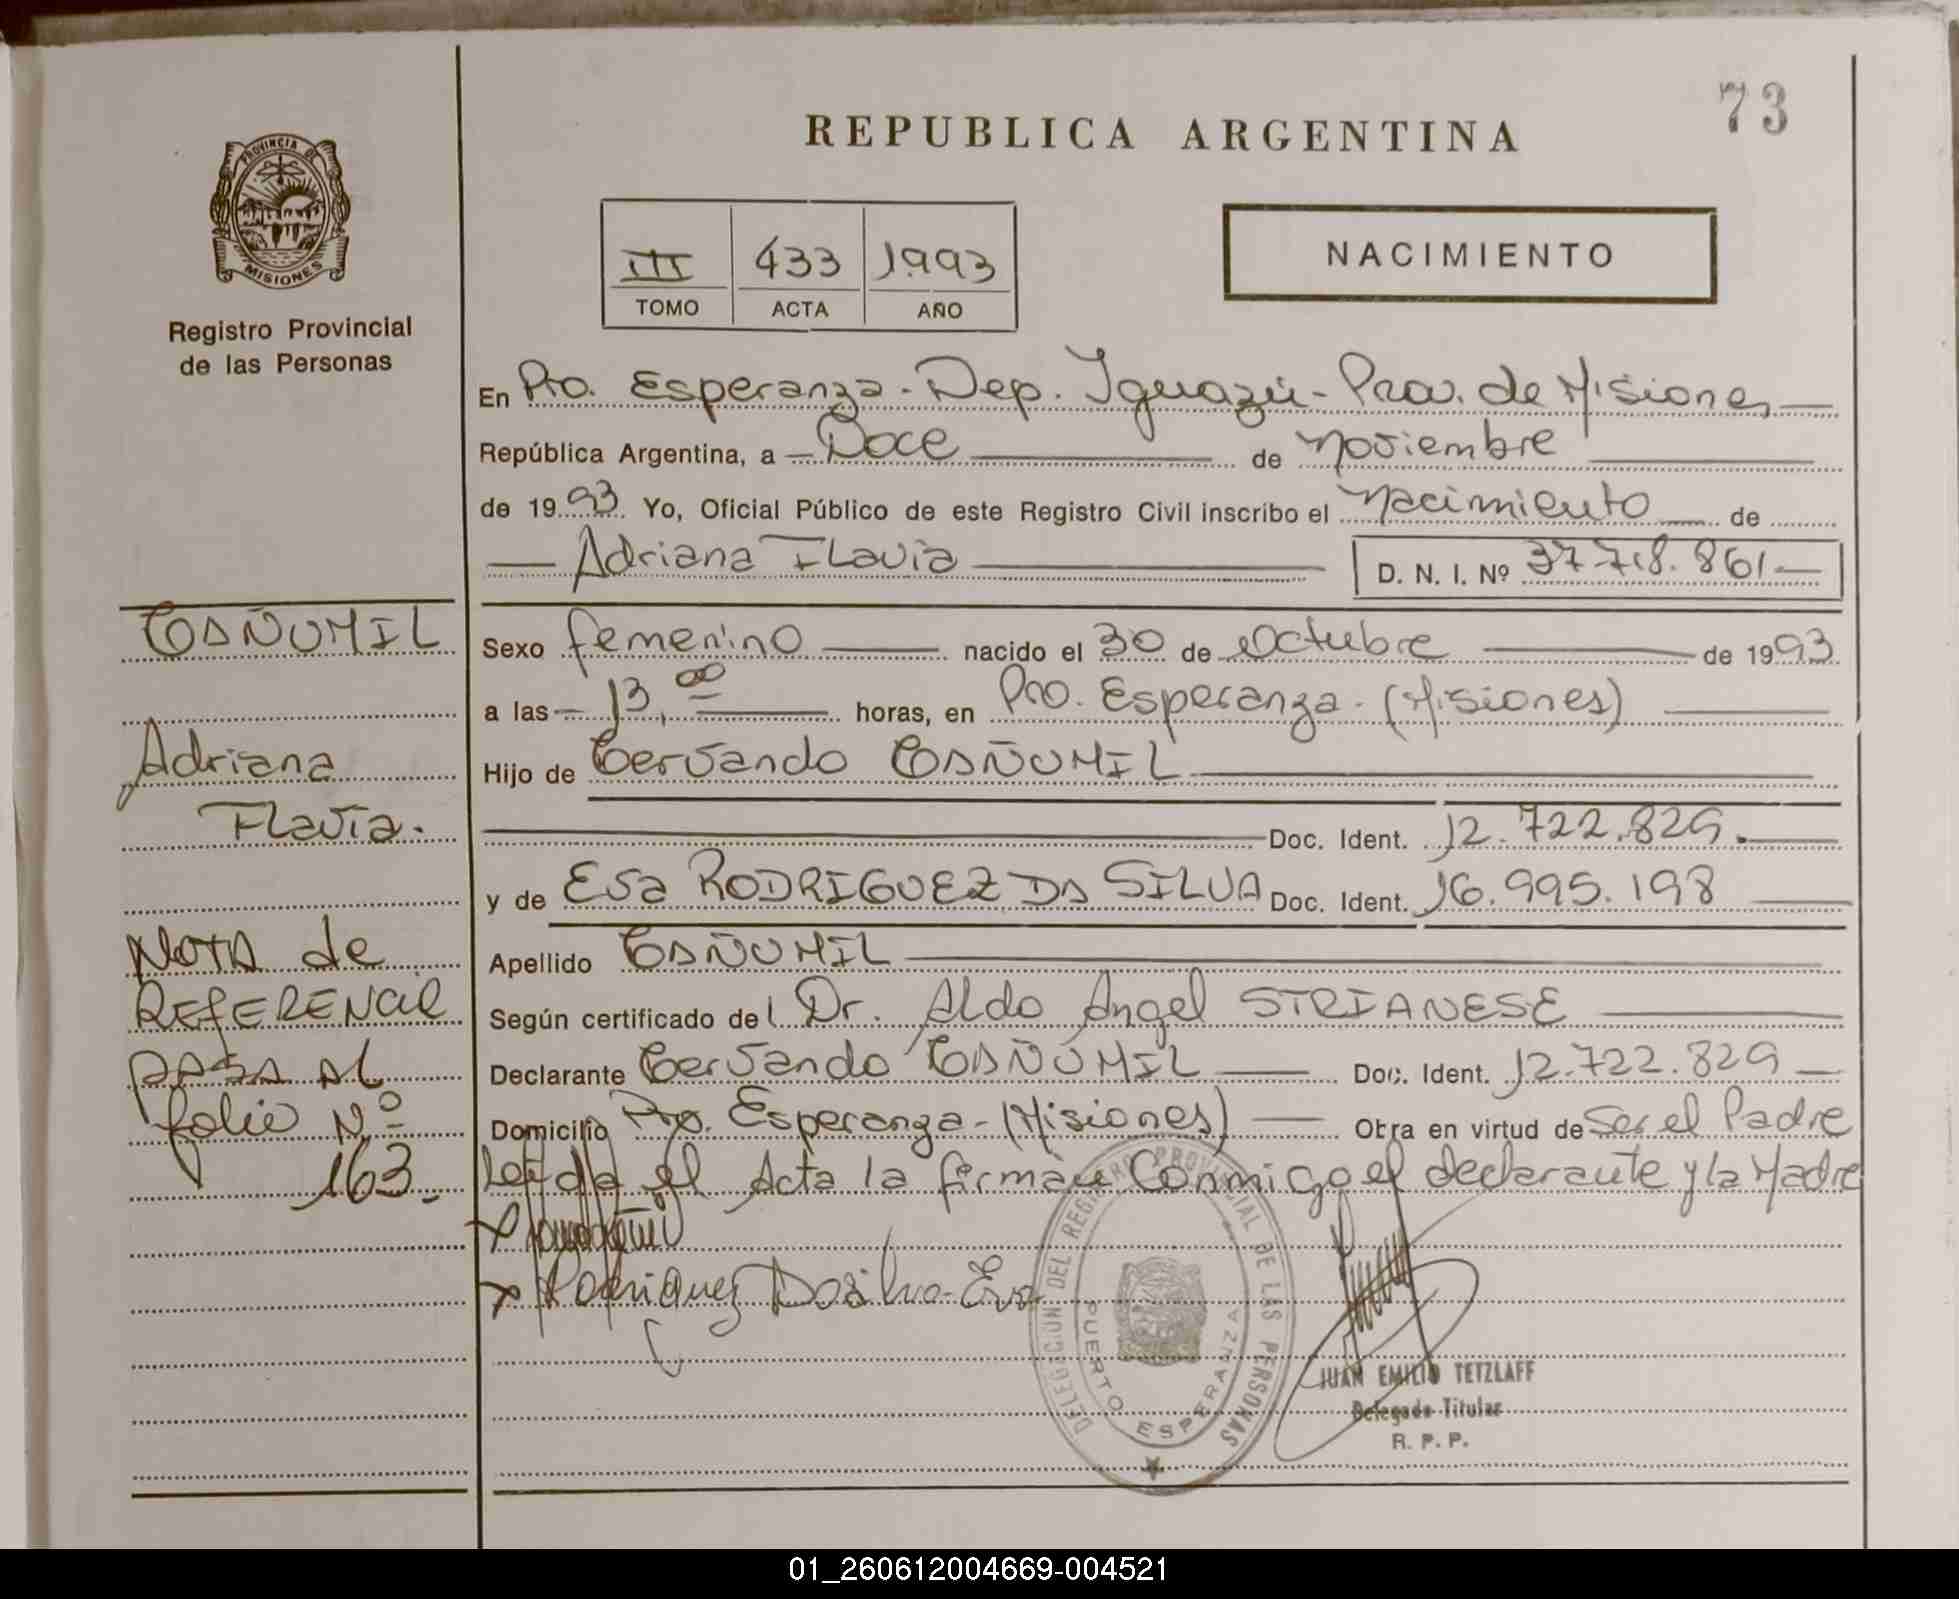 73
REPUBLICA ARGENTINA
PROVINCIA DE
MISIONES
Registro Provincial
de las Personas
III 433 1993
TOMO ACTA AÑO
NACIMIENTO
En Pto. Esperanza - Dep. Iguazú - Prov. de Misiones
República Argentina, a Doce de noviembre
de 1993. Yo, Oficial Público de este Registro Civil inscribo el nacimiento de
Adriana Flavia D. N. I. Nº 37.718.861
CAÑUMIL
Adriana
Flavia.
NOTA de
REFERENCIA
PASA AL
folio N.º
163.
Sexo femenino nacido el 30 de Octubre de 1993
a las 13,00 horas, en Pto. Esperanza - (Misiones)
Hijo de Cervando CAÑUMIL
Doc. Ident. 12.722.829.
y de Eva RODRIGUEZ DA SILVA Doc. Ident. 16.995.198
Apellido CAÑUMIL
Según certificado del Dr. Aldo Angel STRIANESE
Declarante Cervando CAÑUMIL Doc. Ident. 12.722.829
Domicilio Pto. Esperanza - (Misiones) Obra en virtud de Ser el Padre
Leída el Acta la firman Conmigo el declarante y la Madre
Rodriguez Dasilva Eva
DELEGACION DEL REGISTRO PROVINCIAL DE LAS PERSONAS
PUERTO ESPERANZA
JUAN EMILIO TETZLAFF
Delegado Titular
R. P. P.
01_260612004669-004521